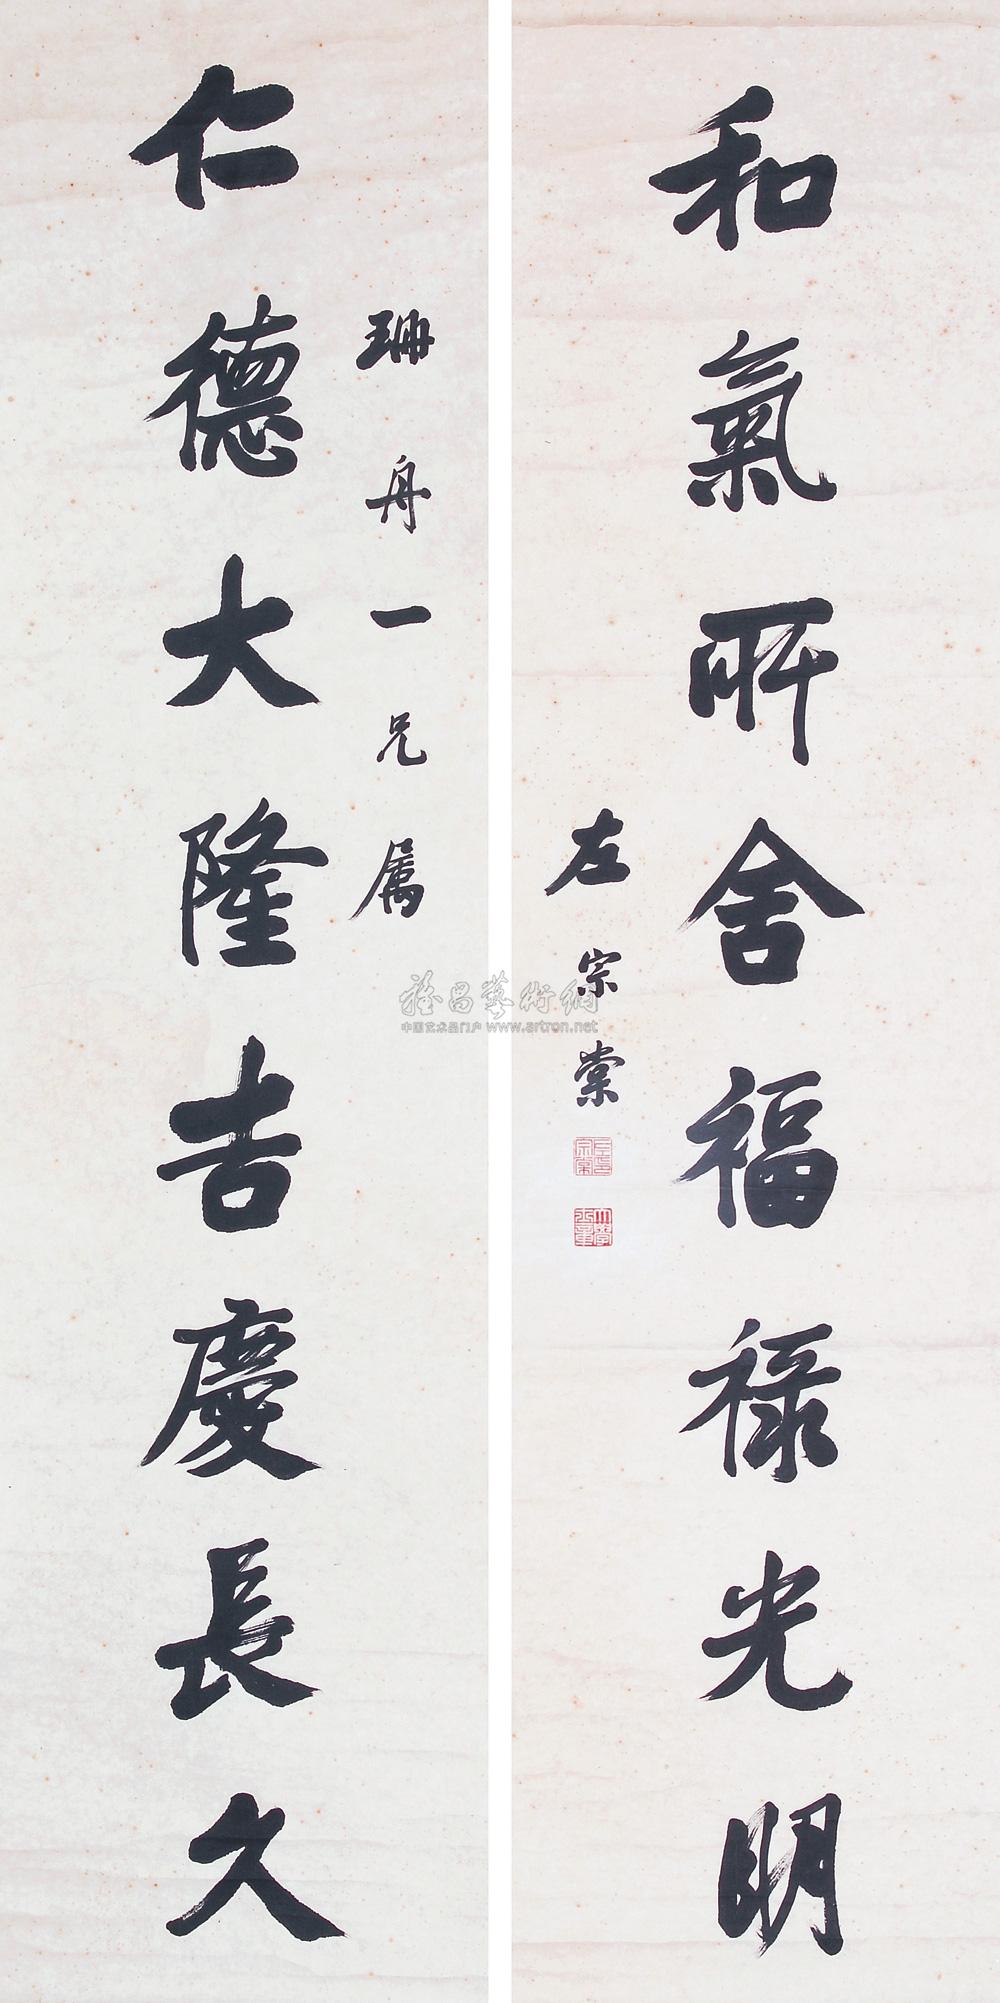 和氣所舍福祿光明
左宗棠
仁德大隆吉慶長久
珊舟一兄属
雅昌藝術網
中国艺术品门户 www.artron.net